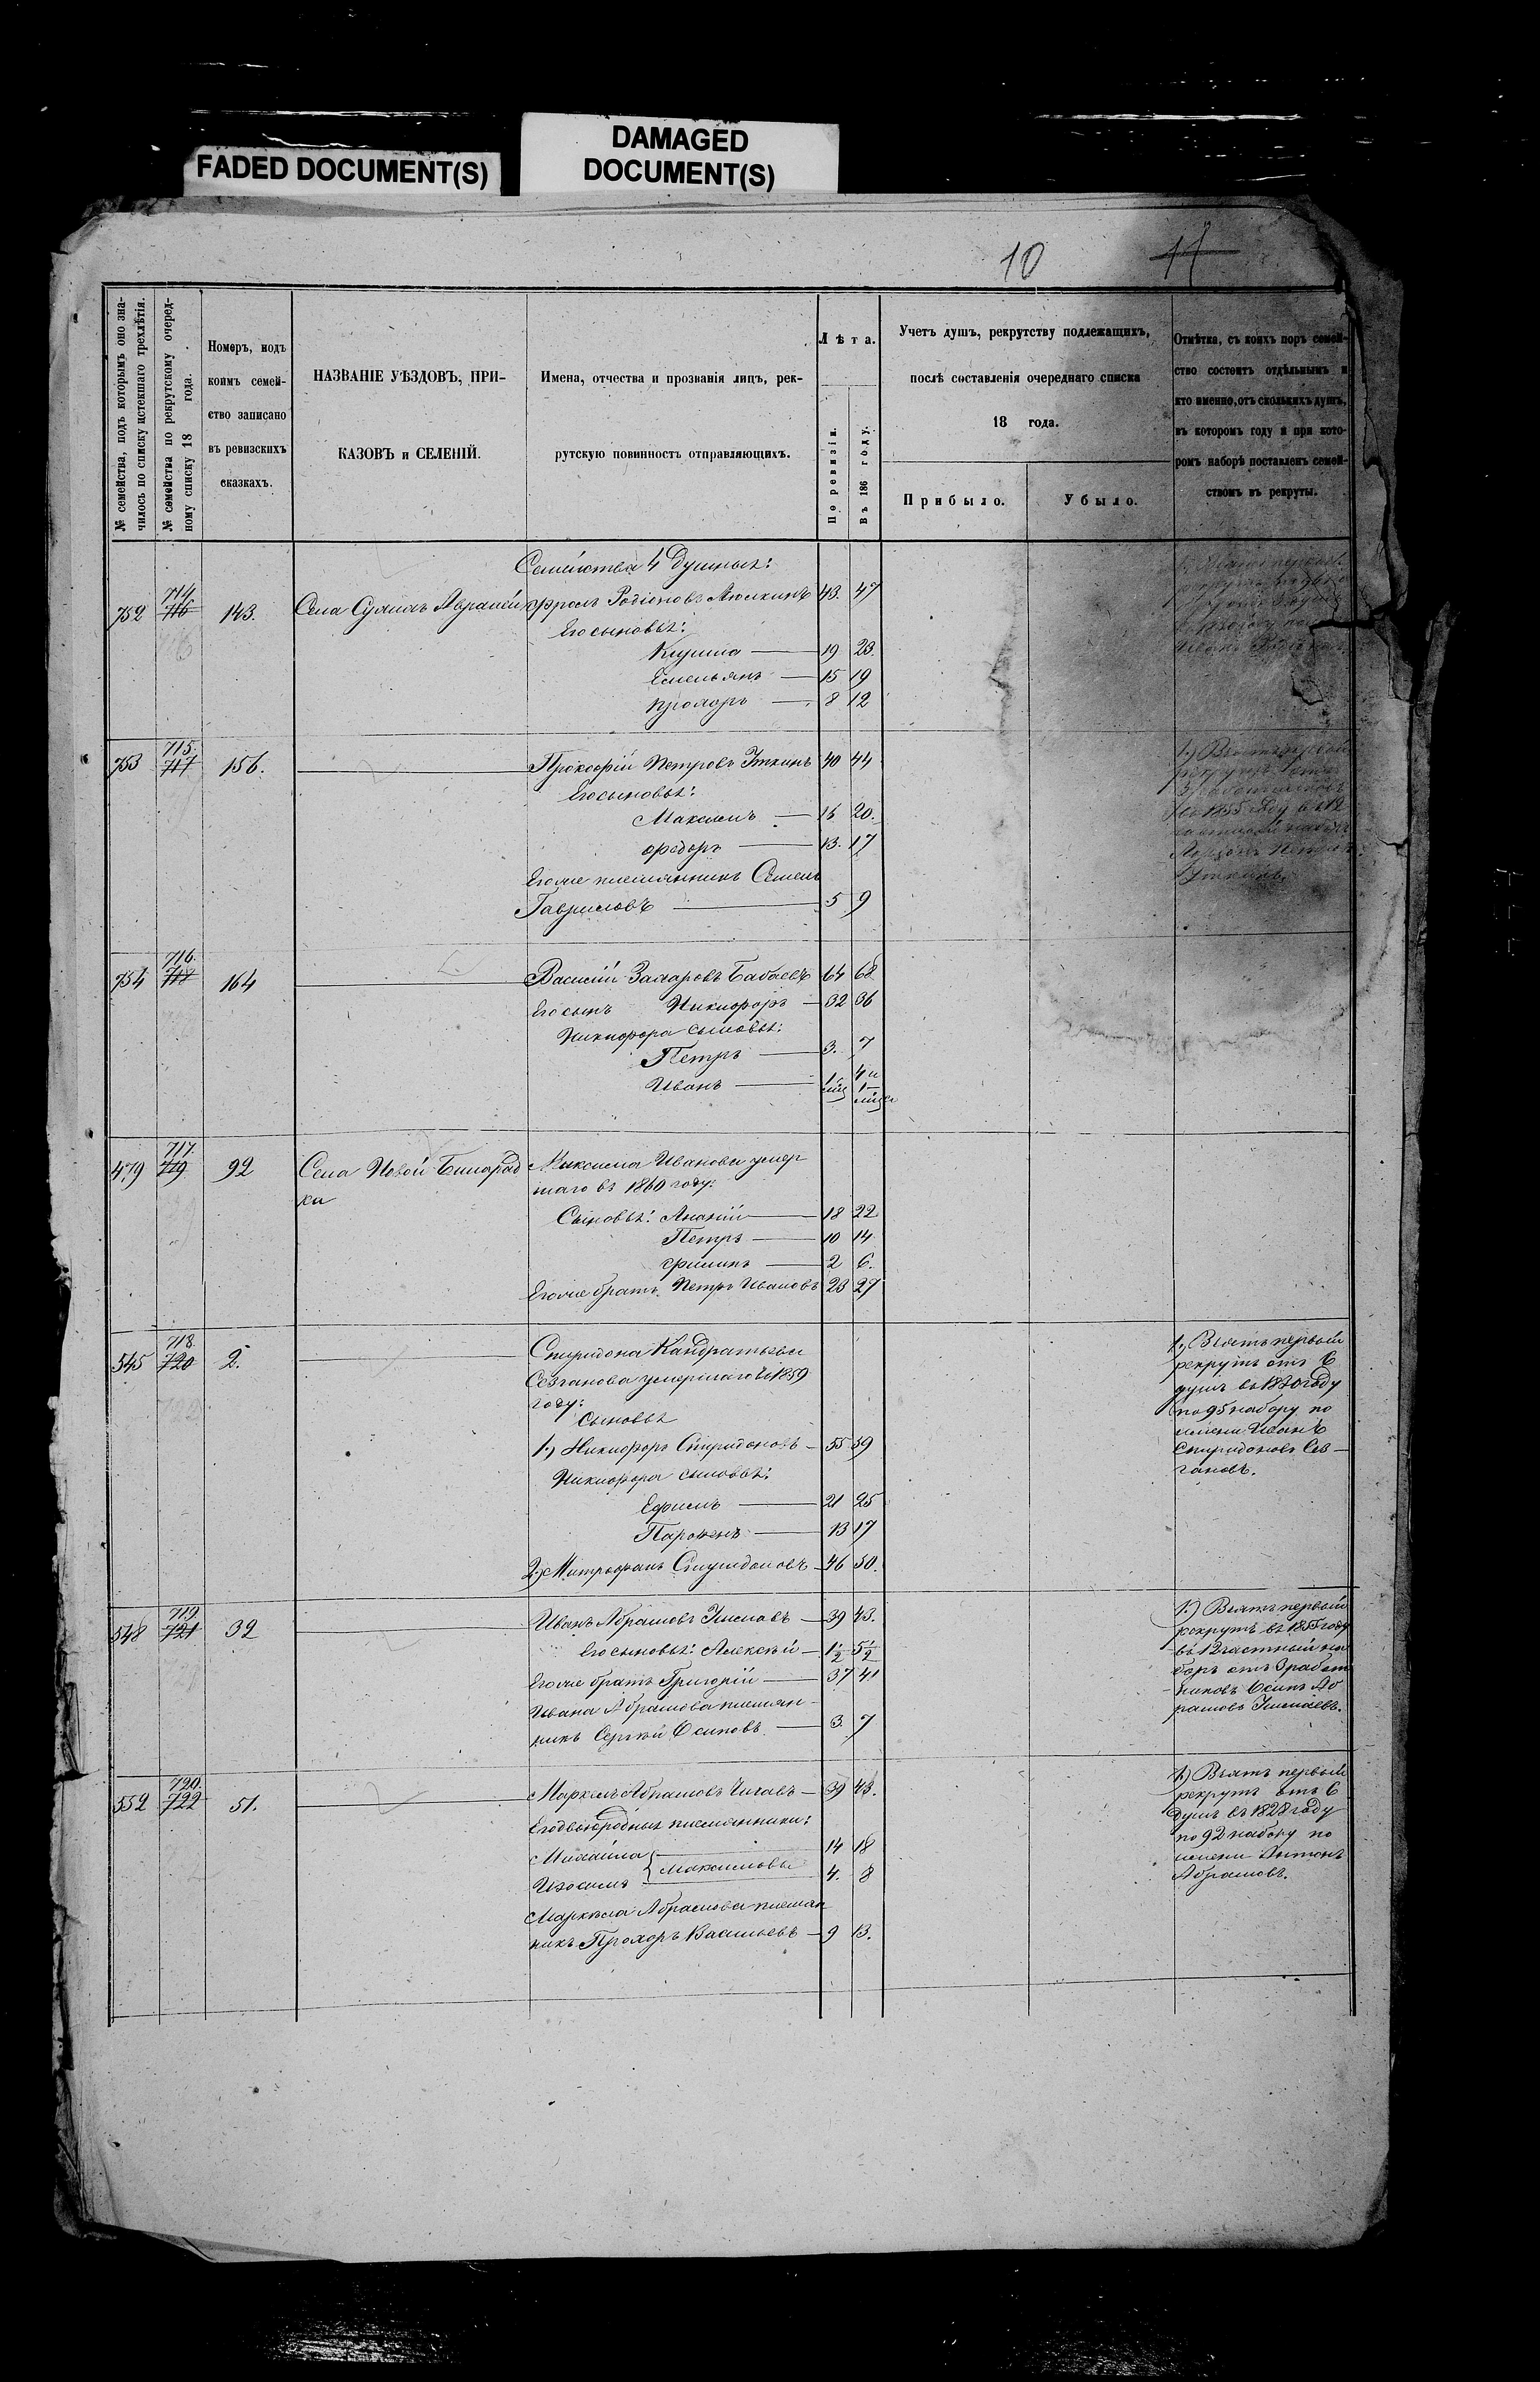 FADED DOCUMENT(S)
DAMAGED
DOCUMENT(S)
10
11
№ семейства, подъ которымъ оно зна-
чилось по списку истекшаго трехлѣтія.
№ семейства по рекрутскому очеред-
ному списку 18 года.
Номеръ, подъ
коимъ семей-
ство записано
въ ревизскихъ
сказкахъ.
НАЗВАНІЕ УѢЗДОВЪ, ПРИ-
КАЗОВЪ и СЕЛЕНІЙ.
Имена, отчества и прозванія лицъ, рек-
рутскую повинность отправляющихъ.
Лѣта.
По ревизіи.
Въ 186 году.
Учетъ душъ, рекрутству подлежащихъ,
послѣ составленія очереднаго списка
18 года.
Прибыло.
Убыло.
Отмѣтка, съ коихъ поръ семей-
ство состоитъ отдѣльнымъ и
кто именно, отъ сколькихъ душъ,
въ которомъ году и при кото-
ромъ наборѣ поставленъ семей-
ствомъ въ рекруты.
Семейства 4 душныя:
714.
752 716 143. Села Фролъ Родіоновъ 43. 47
Его сыновья:
19 23.
Емельянъ 15 19
Прохоръ 8 12
715.
753 717 156. Прокофій Петровъ 40 44
Его сыновья:
Максимъ 16 20.
Федоръ 13. 17
Егоже племянникъ Семенъ
Гавриловъ 5 9
1.) Взятъ первый
рекрутъ
въ 1855 году
716.
754 718 164 Василій Захаровъ Бабаевъ 64 68
Его сынъ Никифоръ 32 36
Никифора сыновья:
Петръ 3. 7
Иванъ
717.
479 719 92 Села Новой Бинарад
ка
Максима Иванова умер
шаго въ 1860 году:
Сыновья: Ананій 18 22
Петръ 10 14
Филипъ 2 6.
Егоже братъ Петръ Ивановъ 23 27
718.
545 720 2. Спиридона Кандратьева
умершаго въ 1859
году:
Сыновья
1.) Никифоръ Спиридоновъ 55 59
Никифора сыновья:
Ефимъ 21 25
Парфенъ 13 17
2.) Митрофанъ Спиридоновъ 46 50.
1.) Взятъ первый
рекрутъ отъ 6
душъ въ 1830 году
по 95 набору по
имени Иванъ
Спиридоновъ Сез-
гановъ.
719.
548 721 32 Иванъ Абрамовъ 39 43.
Его сыновья: Алексѣй 1½ 5½
Егоже братъ Григорій 37 41
Ивана Абрамова племян-
никъ Сергѣй Осиповъ 3. 7
1.) Взятъ первый
рекрутъ въ 1855 году
въ 12 частный на
боръ отъ 3 работ
никовъ Осипъ Аб
рамовъ
720.
552 722 51. Маркелъ Абрамовъ 39 43.
Его двоюродныя племянники:
Михайла 14 18
Изосимъ Максимовы 4. 8
Маркела Абрамова племян
никъ Прохоръ Васильевъ 9 13.
1.) Взятъ первый
рекрутъ отъ 6
душъ въ 1828 году
по 92 набору по
имени Антонъ
Абрамовъ.